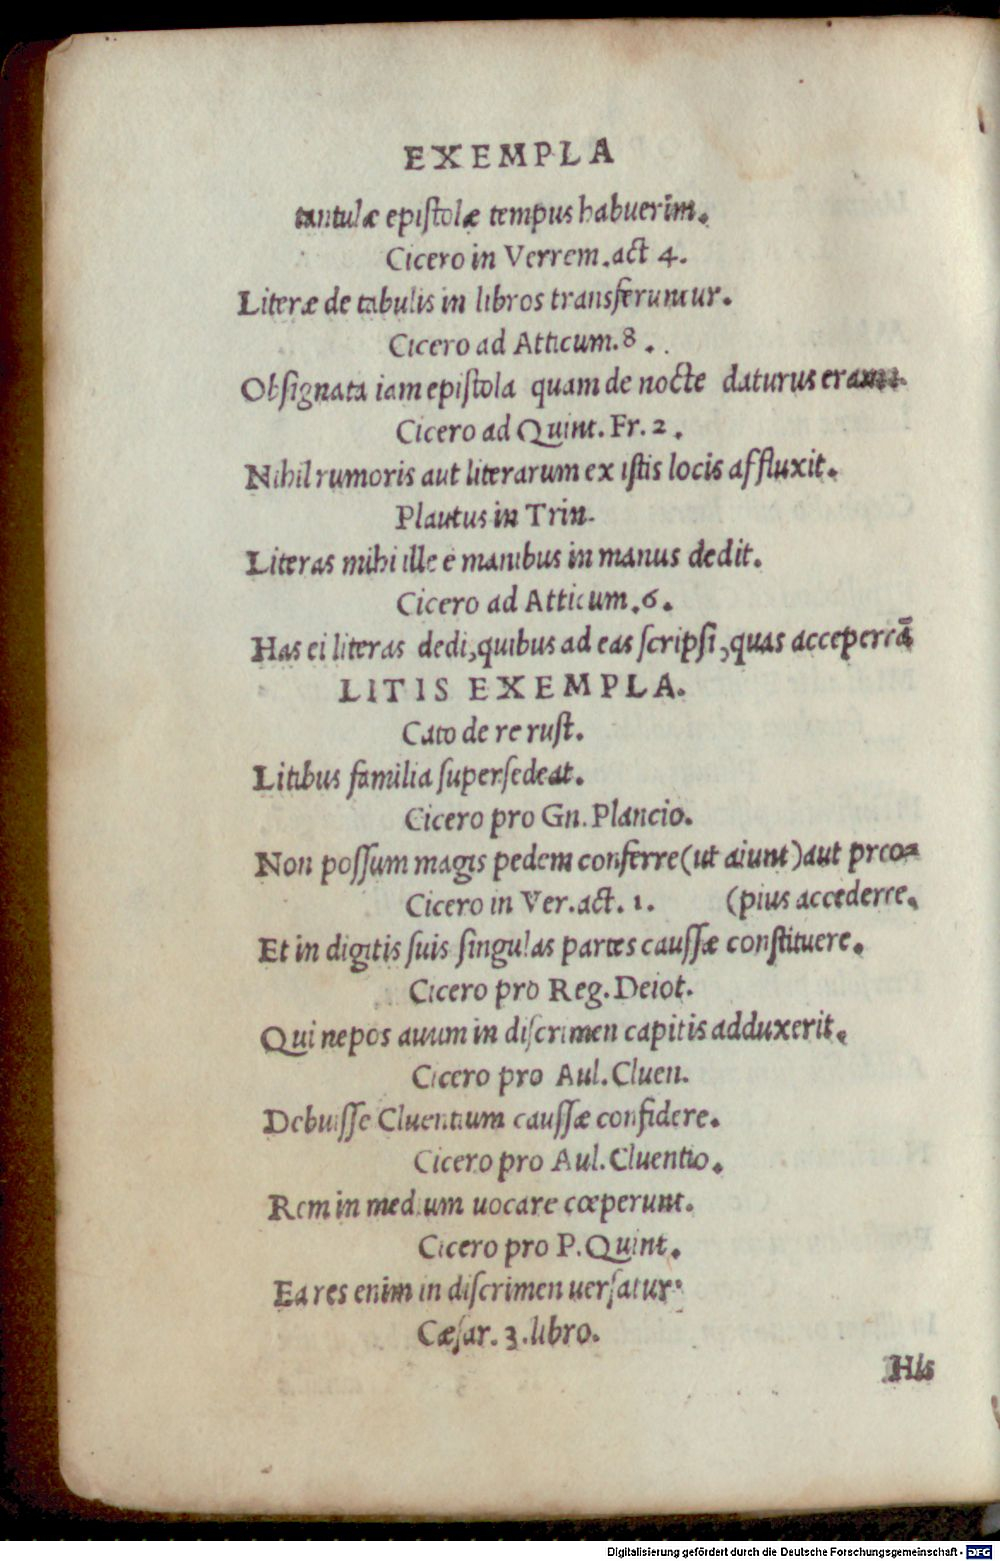 EXEMPLA
tantulæ epiſtolæ tempus habuerim.
Cicero in Verrem.act 4.
Literæ de tabulis in libros transferuntur.
Cicero ad Atticum.8.
Obſignata iam epiſtola quam de nocte daturus eram.
Cicero ad Quint. Fr. 2.
Nihil rumoris aut literarum ex iſtis locis affluxit.
Plautus in Trin.
Literas mihi ille e manibus in manus dedit.
Cicero ad Atticum.6.
Has ei literas dedi,quibus ad eas ſcripſi,quas acceperā
LITIS EXEMPLA.
Cato de re ruſt.
Litibus familia ſuperſedeat.
Cicero pro Gn. Plancio.
Non poſſum magis pedem conferre(ut aiunt)aut prco=
Cicero in Ver.act. 1. (pius accederre.
Et in digitis ſuis ſingulas partes cauſſæ conſtituere.
Cicero pro Reg. Deiot.
Qui nepos auum in diſcrimen capitis adduxerit.
Cicero pro Aul. Cluen.
Debuiſſe Cluentium cauſſæ confidere.
Cicero pro Aul. Cluentio.
Rem in medium uocare cœperunt.
Cicero pro P. Quint.
Ea res enim in diſcrimen uerſatur.
Cæſar. 3. libro.
His
Digitalisierung gefördert durch die Deutsche Forschungsgemeinschaft - DFG